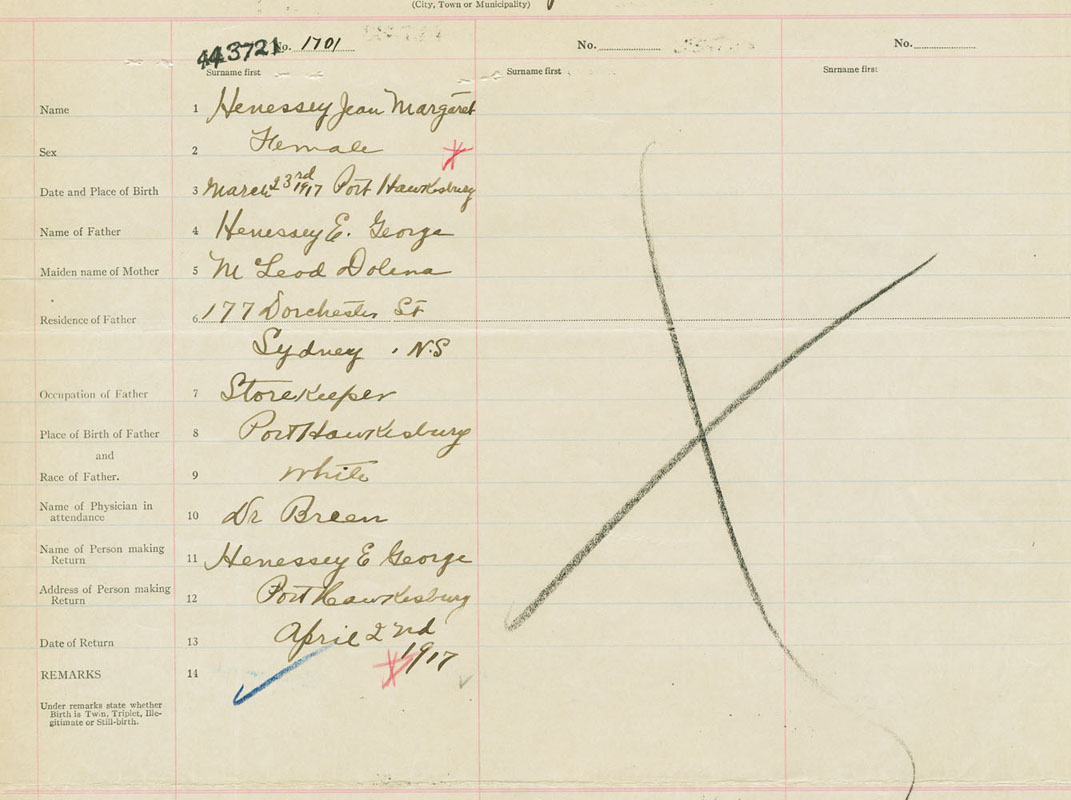 (City, Town or Municipality)
443721 No. 1701
No.
No.
Surname first
Surname first
Surname first
Name 1 Henessey Jean Margaret
Sex 2 Female
Date and Place of Birth 3 March 23rd 1917 Port Hawkesbury
Name of Father 4 Henessey E. George
Maiden name of Mother 5 McLeod Dolena
Residence of Father 6 177 Dorchester St
Sydney, N.S
Occupation of Father 7 Storekeeper
Place of Birth of Father 8 Port Hawkesburg
and
Race of Father. 9 White
Name of Physician in
attendance 10 Dr Breen
Name of Person making
Return 11 Henessey E George
Address of Person making
Return 12 Port Hawkesburg
Date of Return 13 April 2nd
1917
REMARKS 14
Under remarks state whether
Birth is Twin, Triplet, Ille-
gitimate or Still-birth.